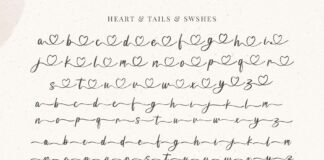 HEART & TAILS & SWSHES
a b c d e f g h i
j k l m n o p q r
s t u v w x y z
a b c d e f g h i j k l m
n o p q r s t u v w x y z
a b c d e f g h i j k l m